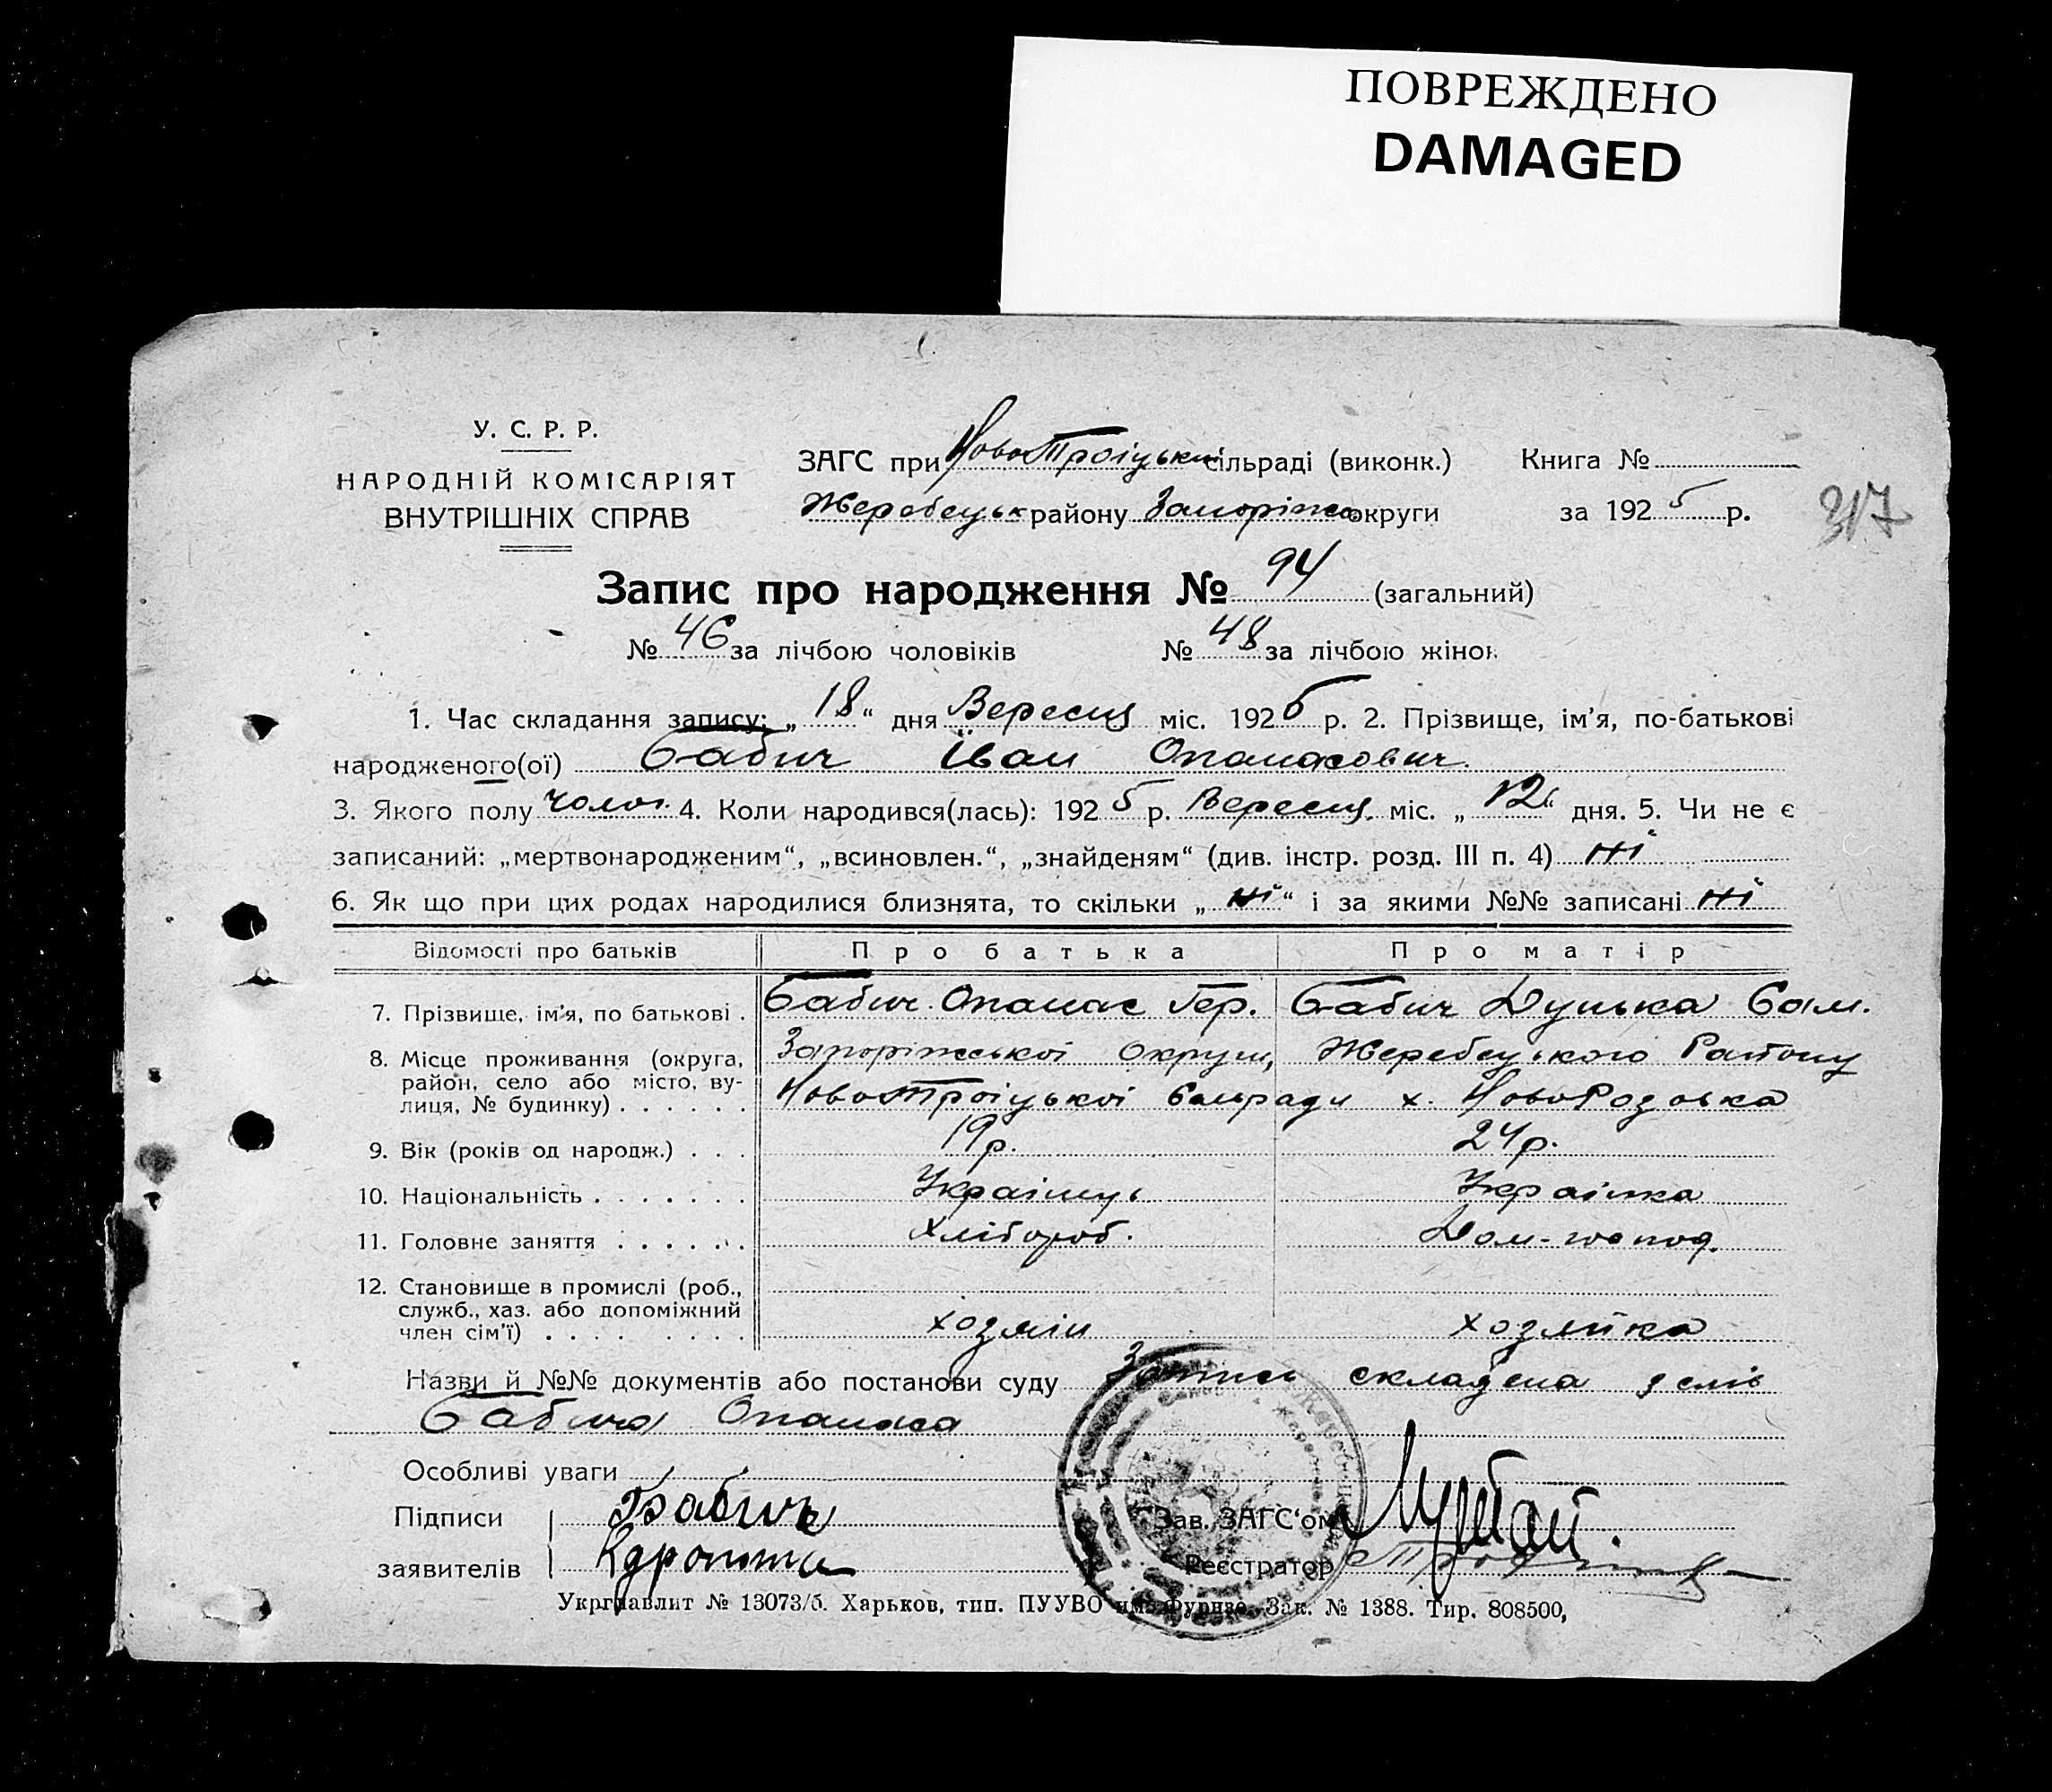 ПОВРЕЖДЕНО
DAMAGED
У. С. Р. Р.
НАРОДНІЙ КОМІСАРІЯТ
ВНУТРІШНІХ СПРАВ
ЗАГС при НовоТроіцький сільраді (виконк.) Книга №
Жеребецьк району Запоріжс округи за 1925 р.
317
Запис про народження № 94 (загальний)
№ 46 за лічбою чоловіків № 48 за лічбою жінок
1. Час складання запису: „18“ дня Вересця міс. 1925 р. 2. Прізвище, ім’я, по-батькові
народженого(ої) Бабич Іван Опанасович.
3. Якого полу чолов. 4. Коли народився(лась): 1925 р. Вересця міс. „12“ дня. 5. Чи не є
записаний: „мертвонародженим“, „всиновлен.“, „знайденям“ (див. інстр. розд. III п. 4) ні
6. Як що при цих родах народилися близнята, то скільки „ні“ і за якими №№ записані ні
Відомості про батьків Про батька Про матір
7. Прізвище, ім’я, по батькові . Бабич Опанас Гер. Бабич Дунька Сам.
8. Місце проживання (округа, Запоріжської Округи, Жеребецького Району
район, село або місто, ву-
лиця, № будинку) . . . . . . НовоТроіцької Сельради х. НовоРозовка
9. Вік (років од народж.) . . . 19р. 24р.
10. Національність . . . . . . . Українць Українка
11. Головне заняття . . . . . . Хлібороб. Дом-господ.
12. Становище в промислі (роб.,
служб., хаз. або допоміжний
член сім’ї) . . . . . . . . хозяїн хозяйка
Назви й №№ документів або постанови суду Запись складена з слів
Бабича Опанаса
Особливі уваги
Підписи Бабичь Зав. ЗАГС‘ом
заявителів Реєстратор
Укрглавлит № 13073/б. Харьков, тип. ПУУВО им. Фрунзе. Зак. № 1388. Тир. 808500,